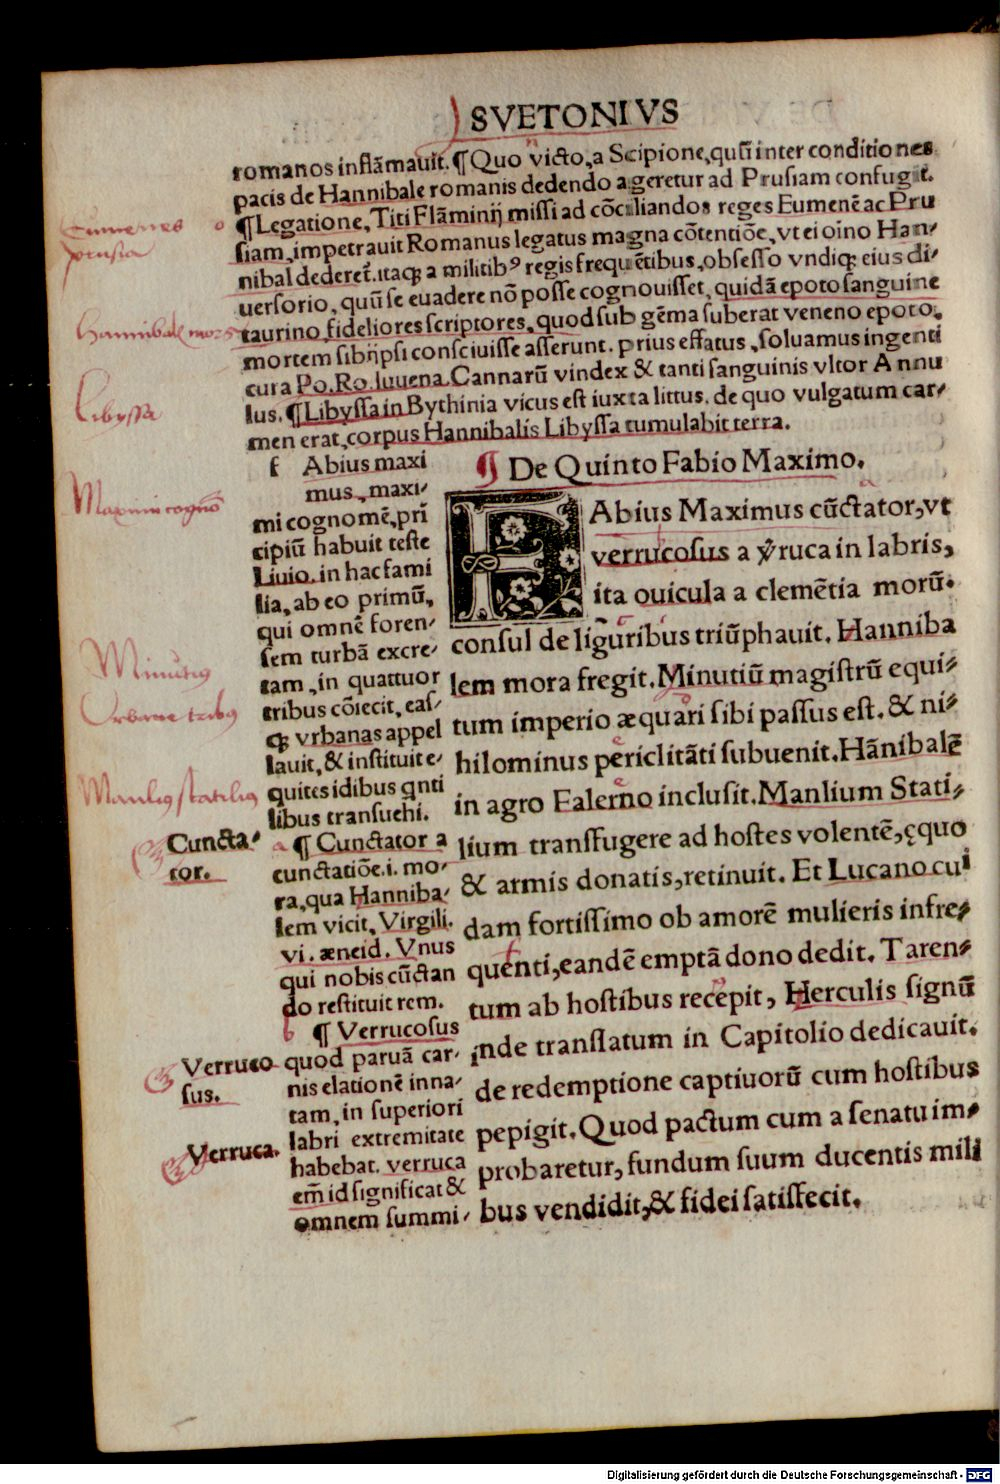 SVETONIVS
romanos inflãmauit. ¶ Quo victo, a Scipione, quũ inter conditiones
pacis de Hannibale romanis dedendo ageretur ad Prusiam confugit.
¶ Legatione, Titi Flãminij missi ad cõciliandos reges Eumenẽ ac Pru
siam, impetrauit Romanus legatus magna cõtentiõe, vt ei oino Han-
nibal dederet. itaq; a militibꝰ regis frequẽtibus, obsesso vndiq; eius di-
uersorio, quũ se euadere nõ posse cognouisset, quidã epoto sanguine
taurino, fideliores scriptores, quod sub gẽma suberat veneno epoto,
mortem sibiipsi consciuisse asserunt. prius effatus, soluamus ingenti
cura Po. Ro. Iuuena. Cannarũ vindex & tanti sanguinis vltor Annu
lus. ¶ Libyssa in Bythinia vicus est iuxta littus, de quo vulgatum car-
men erat, corpus Hannibalis Libyssa tumulabit terra.
Eumenes
prusia
Hannibale mors
Libyssa
f Abius maxi
mus, maxi-
mi cognomẽ, pri
cipiũ habuit teste
Liuio, in hac fami
lia, ab eo primũ,
qui omnẽ foren-
sem turbã excre-
tam, in quattuor
tribus cõiecit, eas-
q; vrbanas appel
lauit, & instituit e-
quites idibus qnti
libus transuehi.
a ¶ Cunctator a
cunctatiõe. i. mo-
ra, qua Hanniba-
lem vicit, Virgili.
vi. æneid. Vnus
qui nobis cũctan
do restituit rem.
b ¶ Verrucosus
quod paruã car-
nis elationẽ inna-
tam, in superiori
labri extremitate
habebat. verruca
em̃ id significat &
omnem summi-
Minutius
Vrbane tribus
Manlius statilius
Cuncta-
tor.
Verruco
sus.
Verruca.
¶ De Quinto Fabio Maximo.
FAbius Maximus cũctator, vt
verrucosus a v̾ruca in labris,
ita ouicula a clemẽtia morũ.
consul de liguribus triũphauit. Hanniba
lem mora fregit. Minutiũ magistrũ equi-
tum imperio æquari sibi passus est. & ni-
hilominus periclitãti subuenit. Hãnibalẽ
in agro Falerno inclusit. Manlium Stati-
lium transfugere ad hostes volentẽ, ęquo
& armis donatis, retinuit. Et Lucano cui
dam fortissimo ob amorẽ mulieris infre-
quenti, eandẽ emptã dono dedit. Taren-
tum ab hostibus recepit, Herculis signũ
inde translatum in Capitolio dedicauit.
de redemptione captiuorũ cum hostibus
pepigit. Quod pactum cum a senatu im-
probaretur, fundum suum ducentis mili
bus vendidit, & fidei satisfecit.
Digitalisierung gefördert durch die Deutsche Forschungsgemeinschaft - DFG